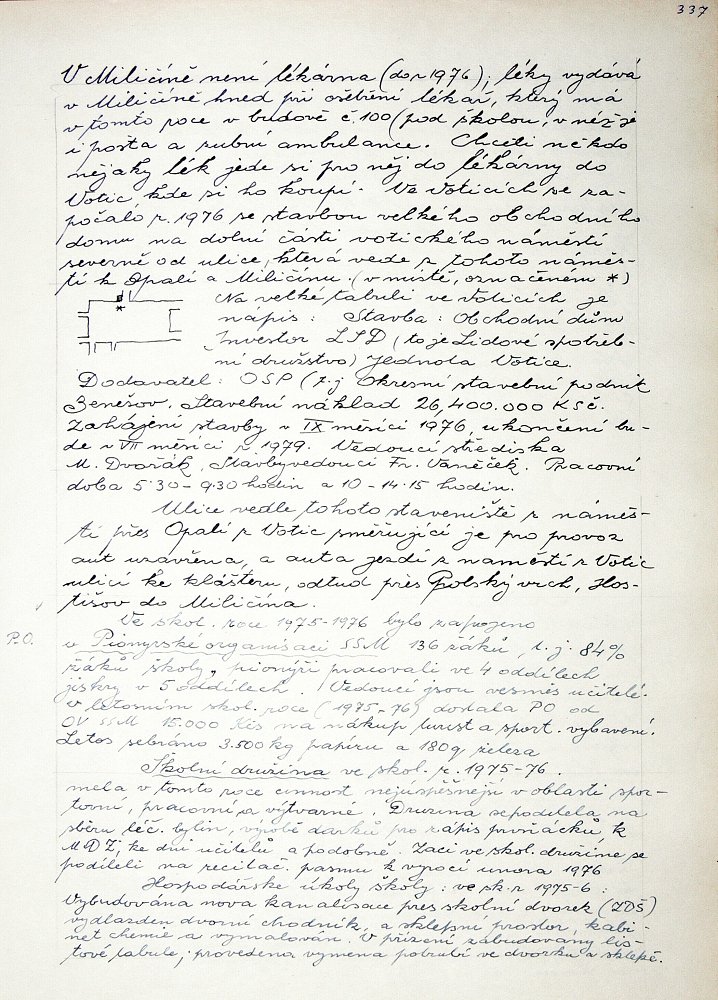 337
V Miličíně není lékárna (do r 1976); léky vydává
v Miličíně hned při ošetření lékař, který má
v tomto roce v budově č. 100 (pod školou, v níž je
i pošta a zubní ambulance. Chceti někdo
nějaky lék jede si pro něj do lékárny do
Votic, kde si ho koupí. Ve Voticích se za-
počalo r. 1976 se stavbou velkého obchodního
domu na dolní části votického náměstí
severně od ulice, která vede z tohoto náměs-
tí k Opalí a Miličínu. (v místě, označeném *)
*
Na velké tabuli ve Voticích je
nápis: Stavba: Obchodní dům
Investor LSD (to je Lidové spotřeb-
ní družstvo) Jednota Votice.
Dodavatel: OSP (t.j. Okresní stavební podnik
Benešov. Stavební náklad 26,400.000 Kčs.
Zahájení stavby v IX měsíci 1976, ukončení bu-
de v VII měsíci r. 1979. Vedoucí střediska
M. Dvořák, Stavbyvedoucí Fr. Vaněček. Pracovní
doba 5.30 - 9.30 hodin a 10 - 14.15 hodin.
Ulice vedle tohoto staveniště z náměs-
tí přes Opalí z Votic směřující je pro provoz
aut uzavřena, a auta jezdí z naměstí z Votic
ulicí ke klášteru, odtud přes Polský vrch, Hos-
tišov do Miličína.
Ve škol. roce 1975-1976 bylo zapojeno
P.O.
v Pionyrské organisaci SSM 136 žáků, t.j. 84%
žáků školy, pionýři pracovali ve 4 oddílech
jiskry v 5 oddílech. Vedoucí jsou vesměs učitelé.
V letosním škol. roce (1975-76) dostala PO od
OV SSM 15.000 Kčs na nákup turist a sport. vybavení.
Letos sebráno 3.500 kg papíru a 180 q železa
Školní družina ve škol. r. 1975-76.
mela v tomto roce cinnost nejúspěšnejší v oblasti spor-
tovní, pracovní a výtvarné. Družina se podílela na
sběru léč. bylin, výrobě darků pro zápis prvňáčků k
MDŽ, ke dni učitelů a podobně. Žaci ve škol. družine se
podíleli na recitač. pasmu k vyrocí unora 1976
Hospodářske úkoly školy: ve šk. r 1975-6:
Vybudována nova kanalisace přes školní dvorek (ZDŠ)
vydlážden dvorní chodník, a sklepní prostor, kabi-
net chemie a vymalován. V přízení zabudovany lis-
tové tabule, provedena vymena potrubí ve dvorku a sklepě.